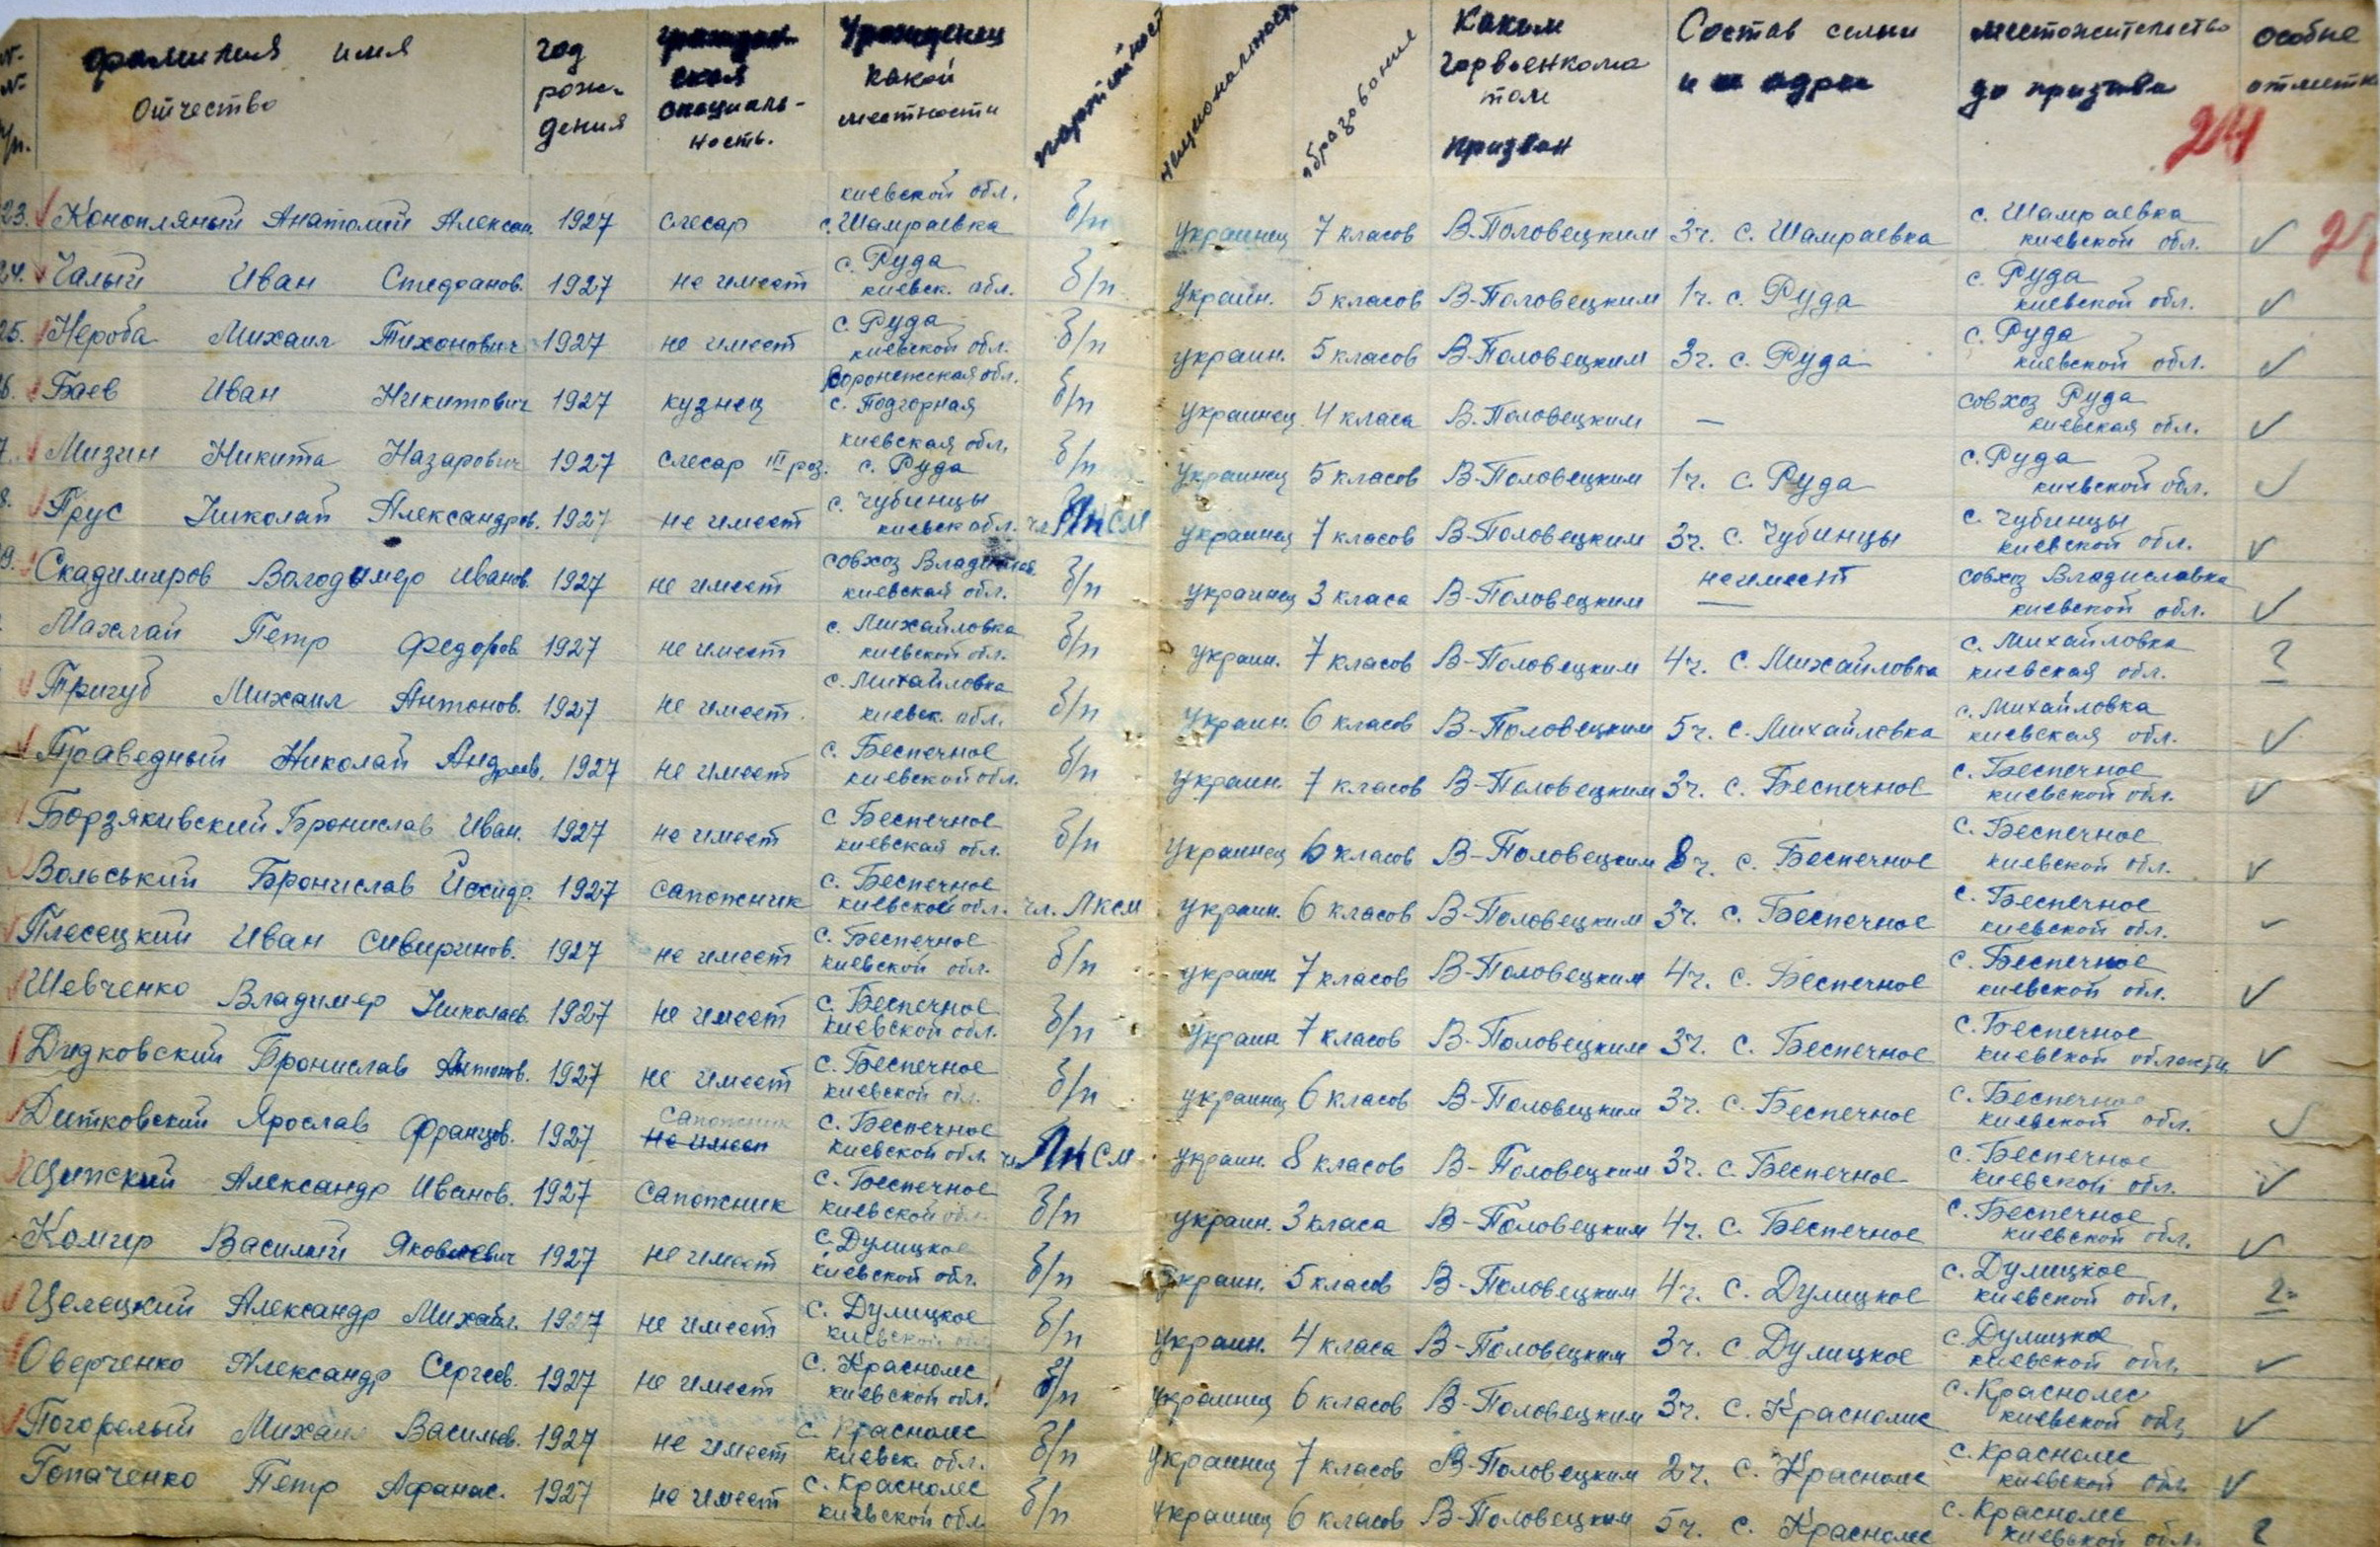 № № п/п. фамилия имя отчество год рождения гражданская специальность. Уроженец какой местности партийност национальност образование Каким горвоенкоматом призван Состав семьи и адрес местожительство до призыва особые отметки
24
23. Конопляный Анатолий Алексан. 1927 слесар киевской обл. с. Шамраевка б/п украинец 7 класов В.Половецким 3ч. с. Шамраевка с. Шамраевка киевской обл. ✓
24. Чалый Иван Стефанов. 1927 не имеет с. Руда киевск. обл. б/п украин. 5 класов В-Половецким 1ч. с. Руда с. Руда киевской обл. ✓
25. Нероба Михаил Тихонович 1927 не имеет с. Руда киевской обл. б/п украин. 5 класов В-Половецким 3ч. с. Руда с. Руда киевской обл. ✓
6. Баев Иван Никитович 1927 кузнец Воронежская обл. с. Подгорная б/п украинец 4 класа В.Половецким — совхоз Руда киевская обл. ✓
7. Мизин Никита Назарович 1927 слесар III роз. киевская обл. с. Руда б/п украинец 5 класов В-Половецким 1ч. с. Руда с. Руда киевской обл. ✓
8. Прус Николай Александров. 1927 не имеет с. Чубинцы киевск обл. чл. ЛКСМ украинец 7 класов В-Половецким 3ч. с. Чубинцы с. Чубинцы киевской обл. ✓
9. Скадимиров Володимер Иванов. 1927 не имеет совхоз Владислав. киевской обл. б/п украинец 3 класа В-Половецким не имеет — совхоз Владиславка киевской обл. ✓
Махлай Петр Федоров. 1927 не имеет с. Михайловка киевской обл. б/п украин. 7 класов В-Половецким 4ч. с. Михайловка с. Михайловка киевская обл. ?
Тригуб Михаил Антонов. 1927 не имеет. с. Михайловка киевск. обл. б/п украин. 6 класов В-Половецким 5ч. с. Михайловка с. Михайловка киевская обл. ✓
Праведный Николай Андреев. 1927 не имеет с. Беспечное киевской обл. б/п украин. 7 класов В-Половецким 3ч. с. Беспечное с. Беспечное киевской обл. ✓
Борзякивский Бронислав Иван. 1927 не имеет с. Беспечное киевская обл. б/п украинец 6 класов В-Половецким 8ч. с. Беспечное с. Беспечное киевской обл. ✓
Вольський Бронислав 1927 сапожник с. Беспечное киевской обл. чл. Лксм украин. 6 класов В-Половецким 3ч. с. Беспечное с. Беспечное киевской обл. ✓
Плесецкий Иван Сивиринов. 1927 не имеет с. Беспечное киевской обл. б/п украин. 7 класов В-Половецким 4ч. с. Беспечное с. Беспечное киевской обл. ✓
Шевченко Владимер Николаев. 1927 не имеет с. Беспечное киевской обл. б/п украин 7 класов В-Половецким 3ч. с. Беспечное с. Беспечное киевской области ✓
Дидковский Бронислав Антонов. 1927 не имеет с. Беспечное киевской обл. б/п украинец 6 класов В-Половецким 3ч. с. Беспечное с. Беспечное киевской обл. ✓
Дитковский Ярослав Францов. 1927 сапожник не имеет с. Беспечное киевской обл. чл. ЛКСМ украин. 8 класов В-Половецким 3ч. с. Беспечное с. Беспечное киевской обл. ✓
Щипский Александр Иванов. 1927 сапожник с. Беспечное киевской обл. б/п украин. 3 класа В-Половецким 4ч. с. Беспечное с. Беспечное киевской обл. ✓
Комир Василий Яковлевич 1927 не имеет с. Дулицкое киевской обл. б/п украин. 5 класов В-Половецким 4ч. с. Дулицкое с. Дулицкое киевской обл. ?
Целецкий Александр Михайл. 1927 не имеет с. Дулицкое киевской обл б/п украин. 4 класа В-Половецким 3ч. с Дулицкое с. Дулицкое киевской обл. ✓
Оверченко Александр Сергеев. 1927 не имеет с. Краснолес киевской обл. б/п украинец 6 класов В-Половецким 3ч. с. Краснолес с. Краснолес киевской обл. ✓
Погорелый Михаил Васильев. 1927 не имеет с. Краснолес киевск. обл. б/п украинец 7 класов В-Половецким 2ч. с. Краснолес с. Краснолес киевской обл ✓
Гопаченко Петр Афанас. 1927 не имеет с. Краснолес киевской обл б/п украинец 6 класов В-Половецким 5ч. с. Краснолес с. Краснолес киевской обл. ?